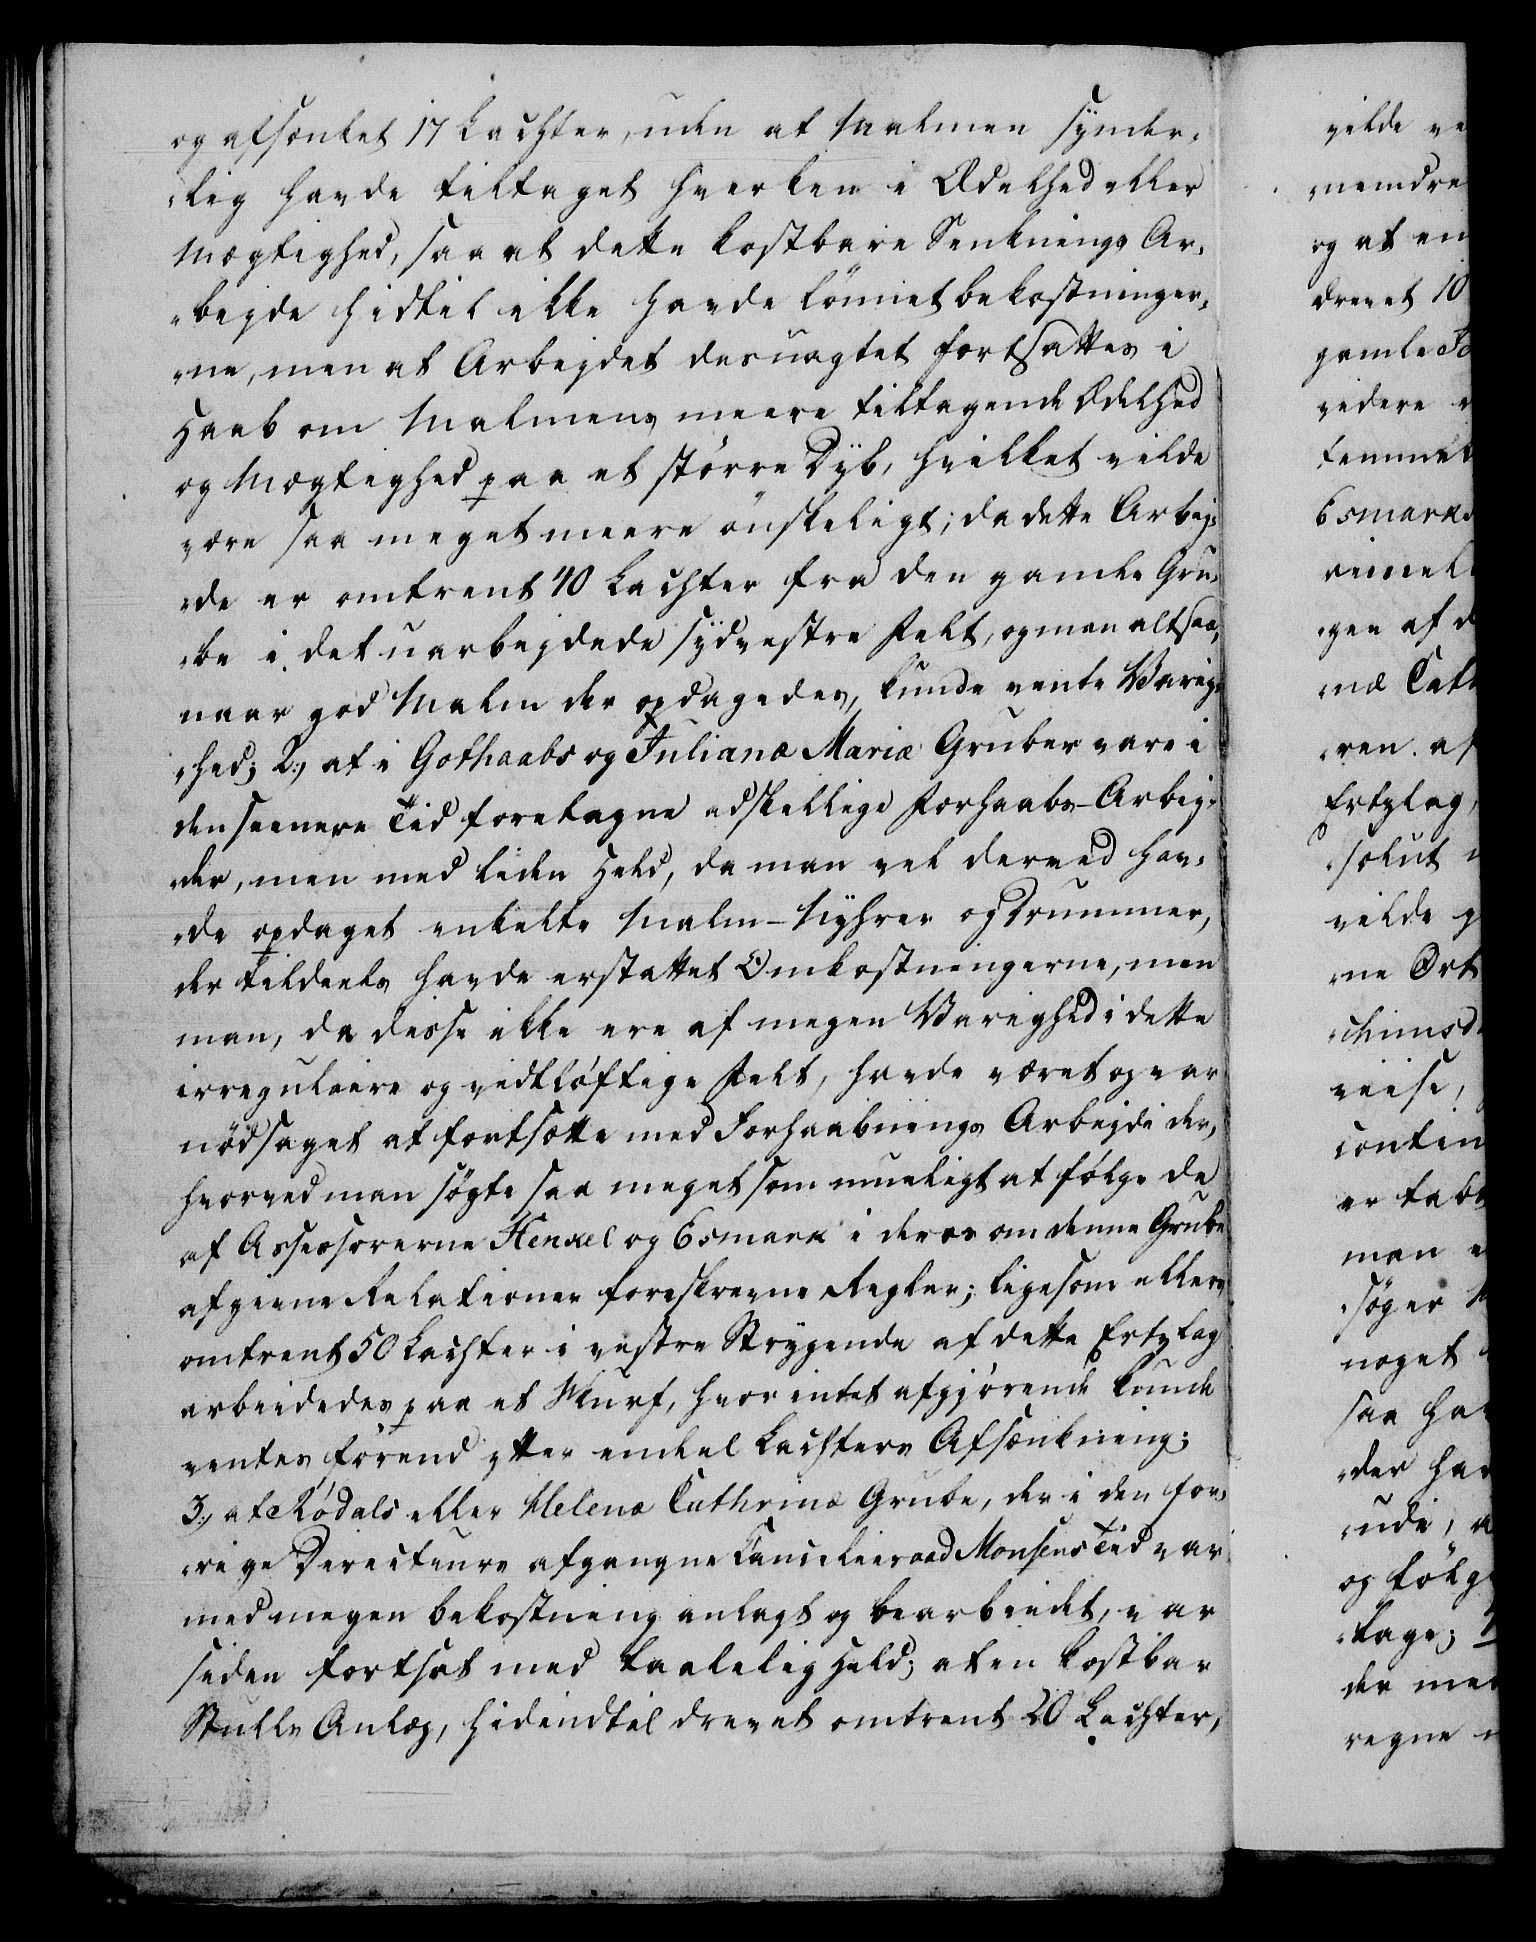 og afsænket 17 Lachter, uden at Malmen synder-
-lig havde tiltaget hverken i Ædelhed eller
Mægtighed, saa at dette kostbare Senknings Ar-
-bejde hidtil ikke havde lönnet bekostninger-
-ne, men at Arbejdet desuagtet fortsattes i
Haab om Malmens meere tiltagende Ædelhed
og Mægtighed paa et större Dyb, hvilket vilde
være saa meget meere önskeligt; da dette Arbej-
-de er omtrent 40 Lachter fra den gamle Gru-
-be i det uarbejdede sydvestre Felt, og man altsaa,
naar god Malm der opdagedes, kunde vente Varig-
-hed; 2:, at i Gothaabs og Julianæ Mariæ Gruber vare i
den seenere Tid foretagne adskellige Forhaabs-Arbej-
-der, men med liden Held, da man vel derved hav-
-de opdaget enkelte Malm-Nyhrer og Trummer,
der tildeels havde erstattet Omkostningerne, men
man, da disse ikke ere af megen Varighed i dette
irregulaire og vidtlöftige Felt, havde været og var
nödsaget at fortsætte med Forhaabnings Arbejder,
hvorved man sögte saa meget som mueligt at fölge de
af Assessorerne Henkel og Esmark i deres om denne Grube
afgivne Relationer foreskrevne Regler; ligesom ellers
omtrent 50 Lachter i vestre Strygende af dette Ertzlag
arbeidedes paa et Skurf, hvor intet afgjörende kunde
ventes förend etter enkel Lachters Afsænkning;
3:, at Rödals eller Helenæ Cathrinæ Grube, der i den for-
-rige Directeurs afgangne Cancelieraad Monsens Tid var
med megen bekostning anlagt og bearbeidet, var
siden fortsat med taalelig Held; at en kostbar
Stulls Anlæg, hidindtil drevet omtrent 20 Lachter,
vilde
og at en
drevet 10
gamle
videre
Esmark
-gen af
-næ Cath
-ren. af
Ertzlag,
-solut
vilde
-ne Ort
contin
er tabt
man
-söger
noget
saa ha
-der ha
-tage;
der me
regne